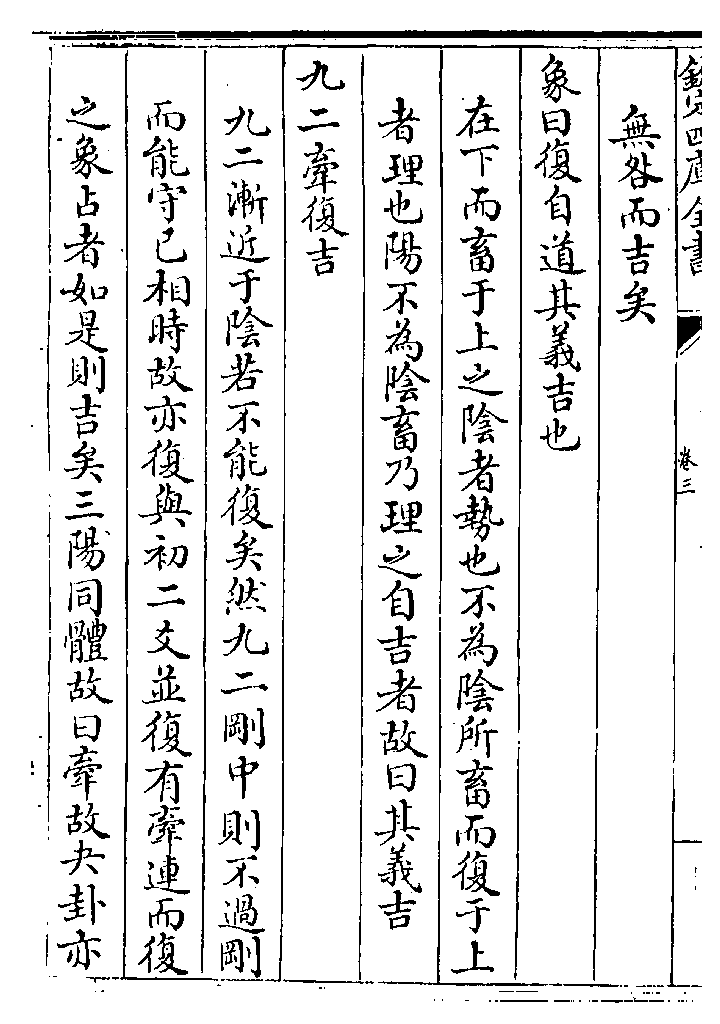 欽定四庫全書
卷三
無咎而吉矣
象曰復自道其義吉也
在下而畜于上之陰者勢也不為陰所畜而復于上
者理也陽不為陰畜乃理之自吉者故曰其義吉
九二牽復吉
九二漸近于陰若不能復矣然九二剛中則不過剛
而能守已相時故亦復與初二爻並復有牽連而復
之象占者如是則吉矣三陽同體故曰牽故夬卦亦